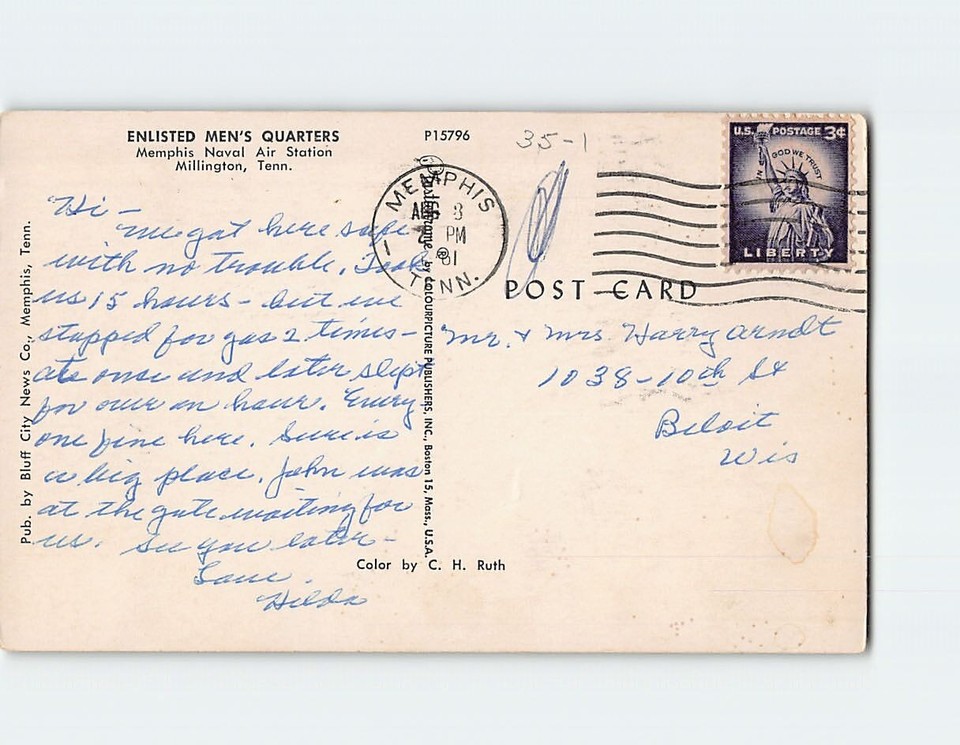 ENLISTED MEN'S QUARTERS
Memphis Naval Air Station
Millington, Tenn.
P15796
35-1
U.S. POSTAGE 3¢
IN GOD WE TRUST
LIBERTY
MEMPHIS
AUG 3
PM
TENN.
POST CARD
Hi -
We got here safe
with no trouble. Took
us 15 hours - but we
stopped for gas 2 times -
ate once and later slept
for over an hour. Every
one fine here. Sure is
a big place. John was
at the gate waiting for
us. See you later -
Love.
Hilda
Mr. & Mrs Harry Arndt
1038-10th St
Beloit
Wis
Pub. by Bluff City News Co., Memphis, Tenn.
by COLOURPICTURE PUBLISHERS, INC., Boston 15, Mass., U.S.A.
Color by C. H. Ruth